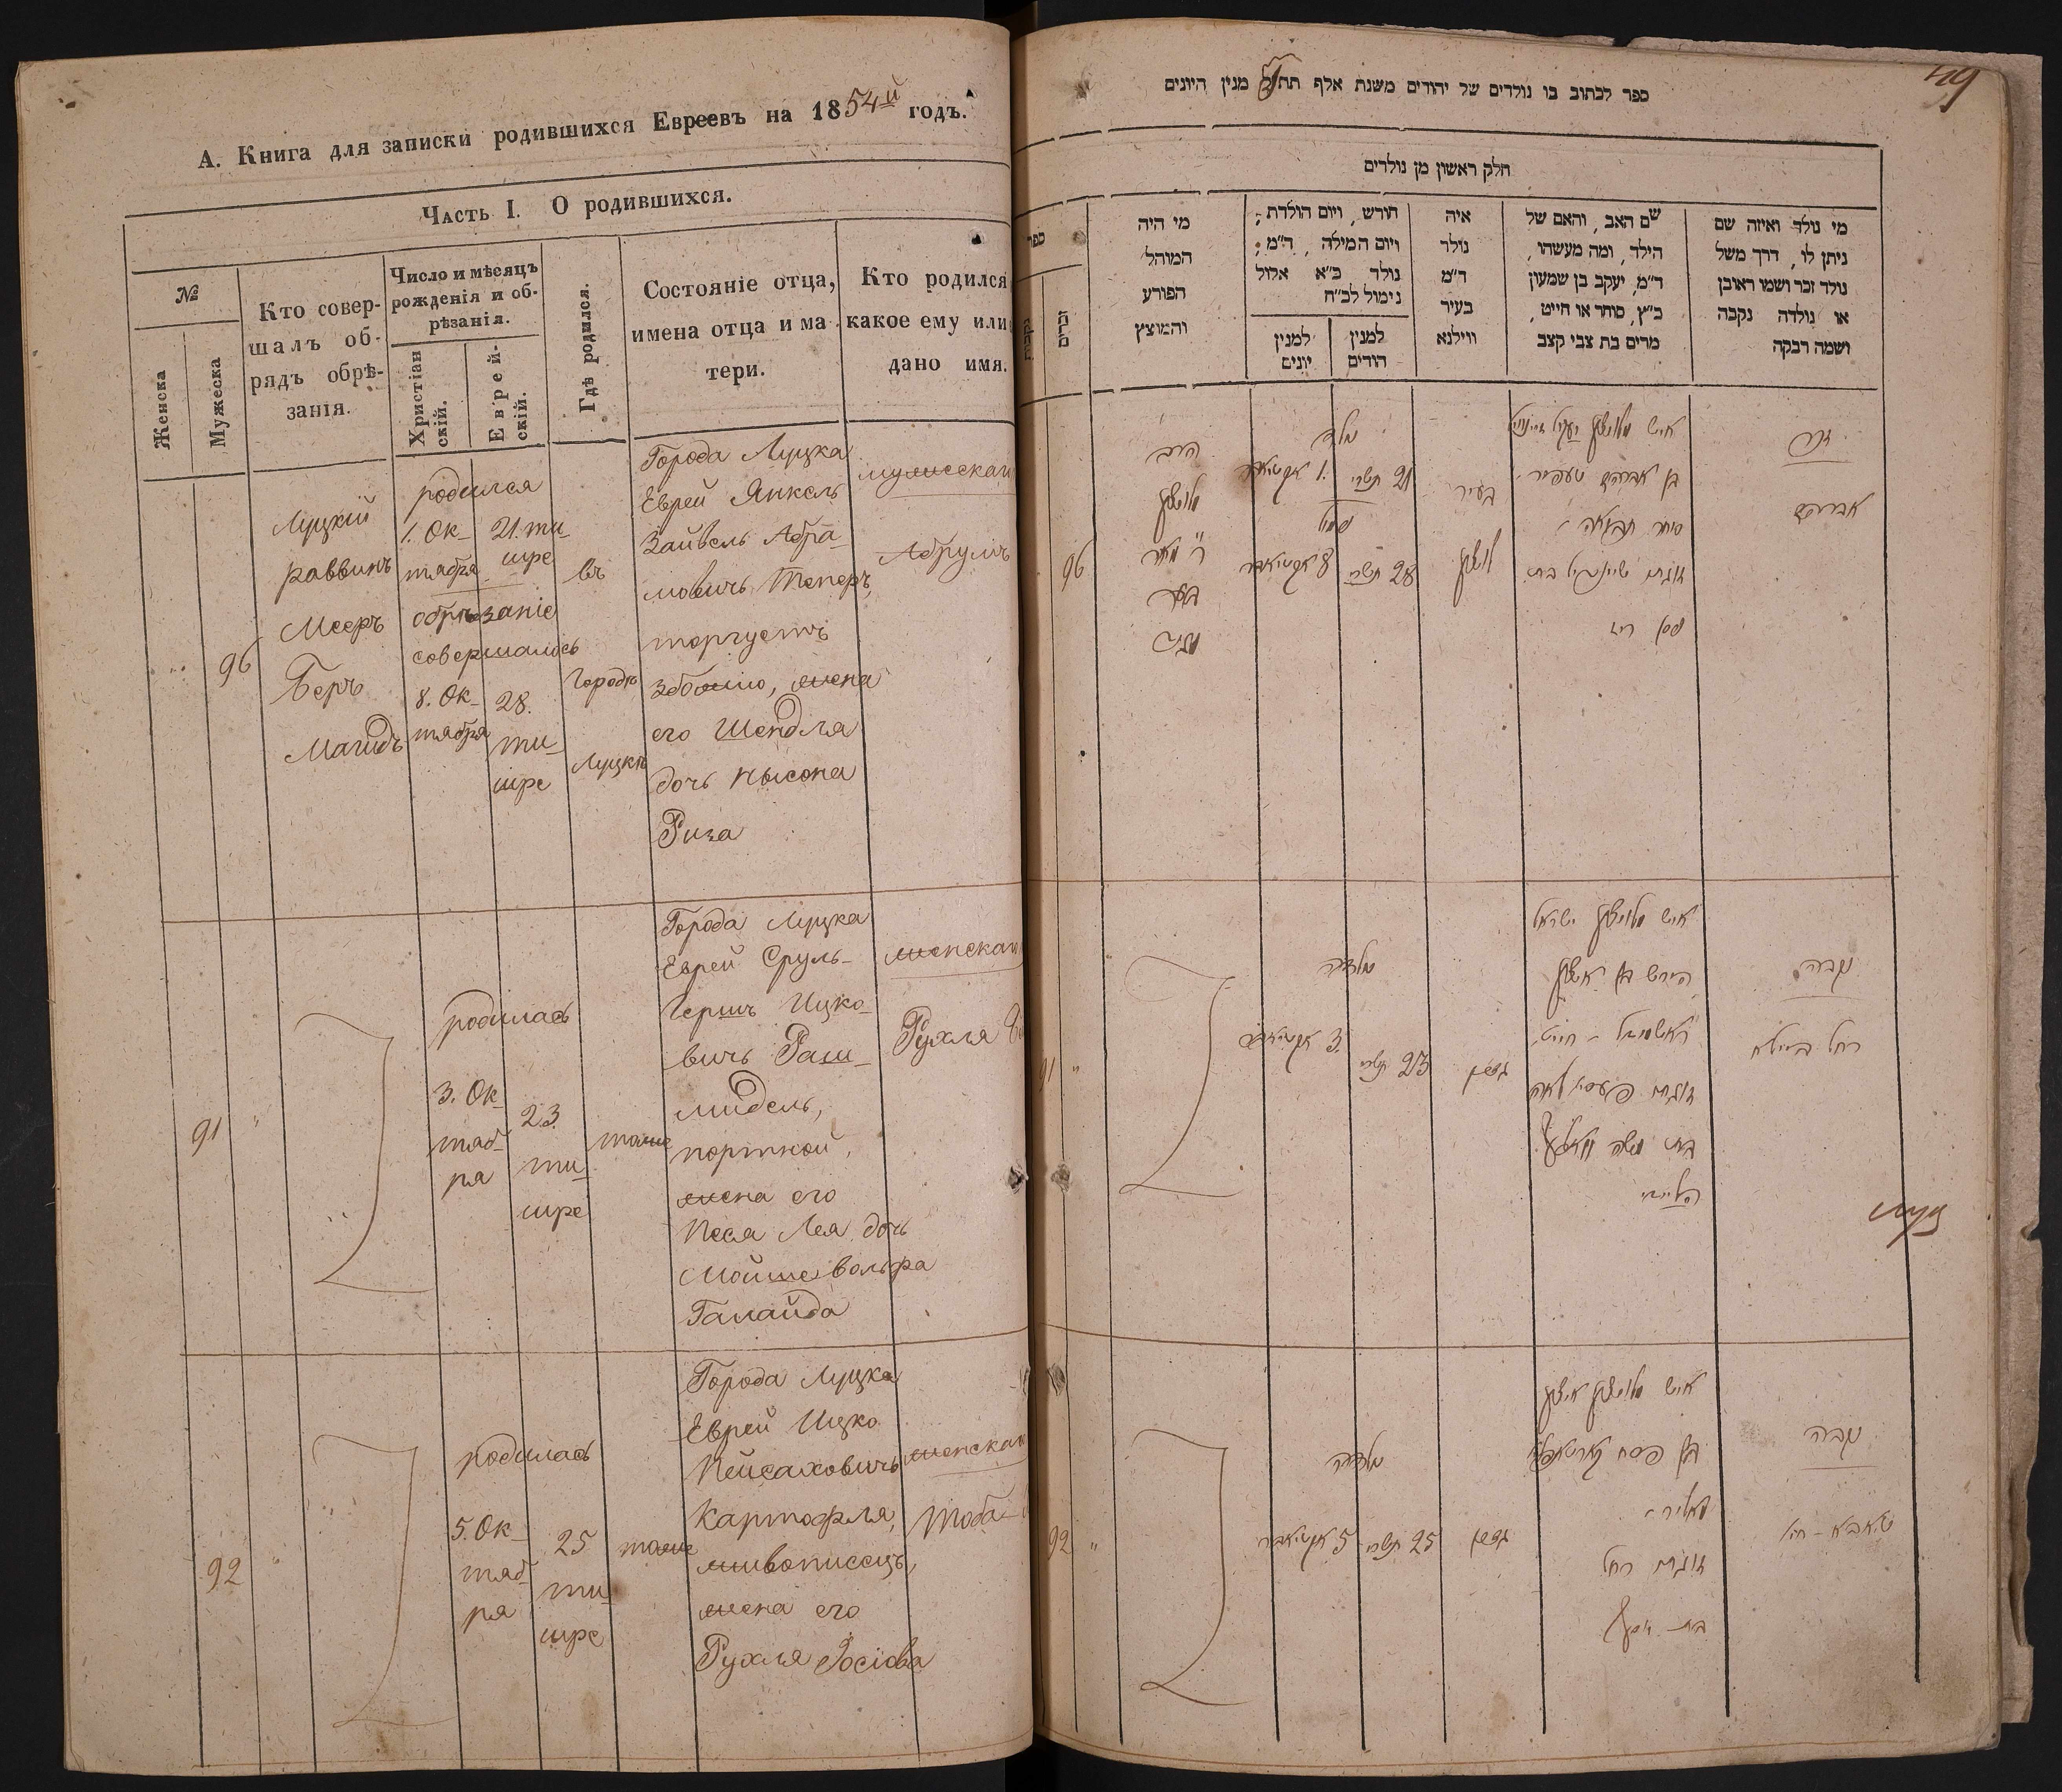 А. Книга для записки родившихся Евреевъ на 1854й годъ.
Часть I. О родившихся.
№
Женска
Мужеска
Кто совер-
шалъ об-
рядъ обрѣ-
занія.
Число и мѣсяцъ
рожденія и об-
рѣзанія.
Христіан
скій.
Еврей-
скій.
Гдѣ родился.
Состояніе отца,
имена отца и ма
тери.
Кто родился
какое ему или
дано имя.
96
Луцкій
раввинъ
Мееръ
Беръ
Магидъ
родился
1. Ок-
тября
21. ти-
шре
обрѣзаніе
совершалось
8. Ок-
тября
28.
ти-
шре
въ
Городѣ
Луцкѣ
Города Луцка
Еврей Янкель
Зайвель Абра-
мовичъ Теперъ,
торгуетъ
збожіо, жена
его Шендля
дочь Нысона
Риза
мужескаго
Абрумъ
91
"
родилась
3. Ок-
тяб-
ря
23.
ти-
шре
тоже
Города Луцка
Еврей Сруль-
Гершъ Ицко-
вичъ Раш-
мидель,
портной,
жена его
Песя Лея дочь
Мойше Вольфа
Галайда
женскаго
Рухля
92
родилась
5. Ок-
тяб-
ря
25
ти-
шре
тоже
Города Луцка
Еврей Ицко
Пейсаховичъ
Картофля,
живописецъ,
жена его
Рухля Іосіова
женскаго
Тоба-
49
ספר לכתוב בו נולדים של יהודים משנת אלף תת מנין היונים
חלק ראשון מן נולדים
מי נולד ואיזה שם
ניתן לו, דרך משל
נולד זכר ושמו ראובן
או נולדה נקבה
ושמה רבקה
שם האב, והאם של
הילד, ומה מעשהו,
ד"מ, יעקב בן שמעון
כ"ץ, סוחר או חייט,
מרים בת צבי קצב
איה
נולד
ד"מ
בעיר
ווילנא
חודש, ויום הולדת;
ויום המילה, ד"מ;
נולד כ"א אלול
נימול לכ"ח
למנין
הודים
למנין
יונים
מי היה
המוהל
הפורע
והמוצץ
ספר
זכרים
זכר
אברהם
בן אברהם טעפיר
סוחר תבואה
זוגתו שיינדיל בת
בעיר
לוצק
נולד
21 תשרי
1. אקטיאבר
נימול
28 תשרי
8 אקטיאבר
הרב
מלוצק
ר' מאיר
בער
מגיד
96
נקבה
איש מלוצק ישראל
הירש בן איצק
חייט
זוגתו פעסי לאה
בת משה וואלף
נולדה
23 תשרי
3. אקטיאבר
91 "
נקבה
טאבא - חי'
איש מלוצק איצק
בן פסח קארטאפליע
מאליר
זוגתו רחל
בת יוסף
נולדה
25 תשרי
5 אקטיאבר
92 "